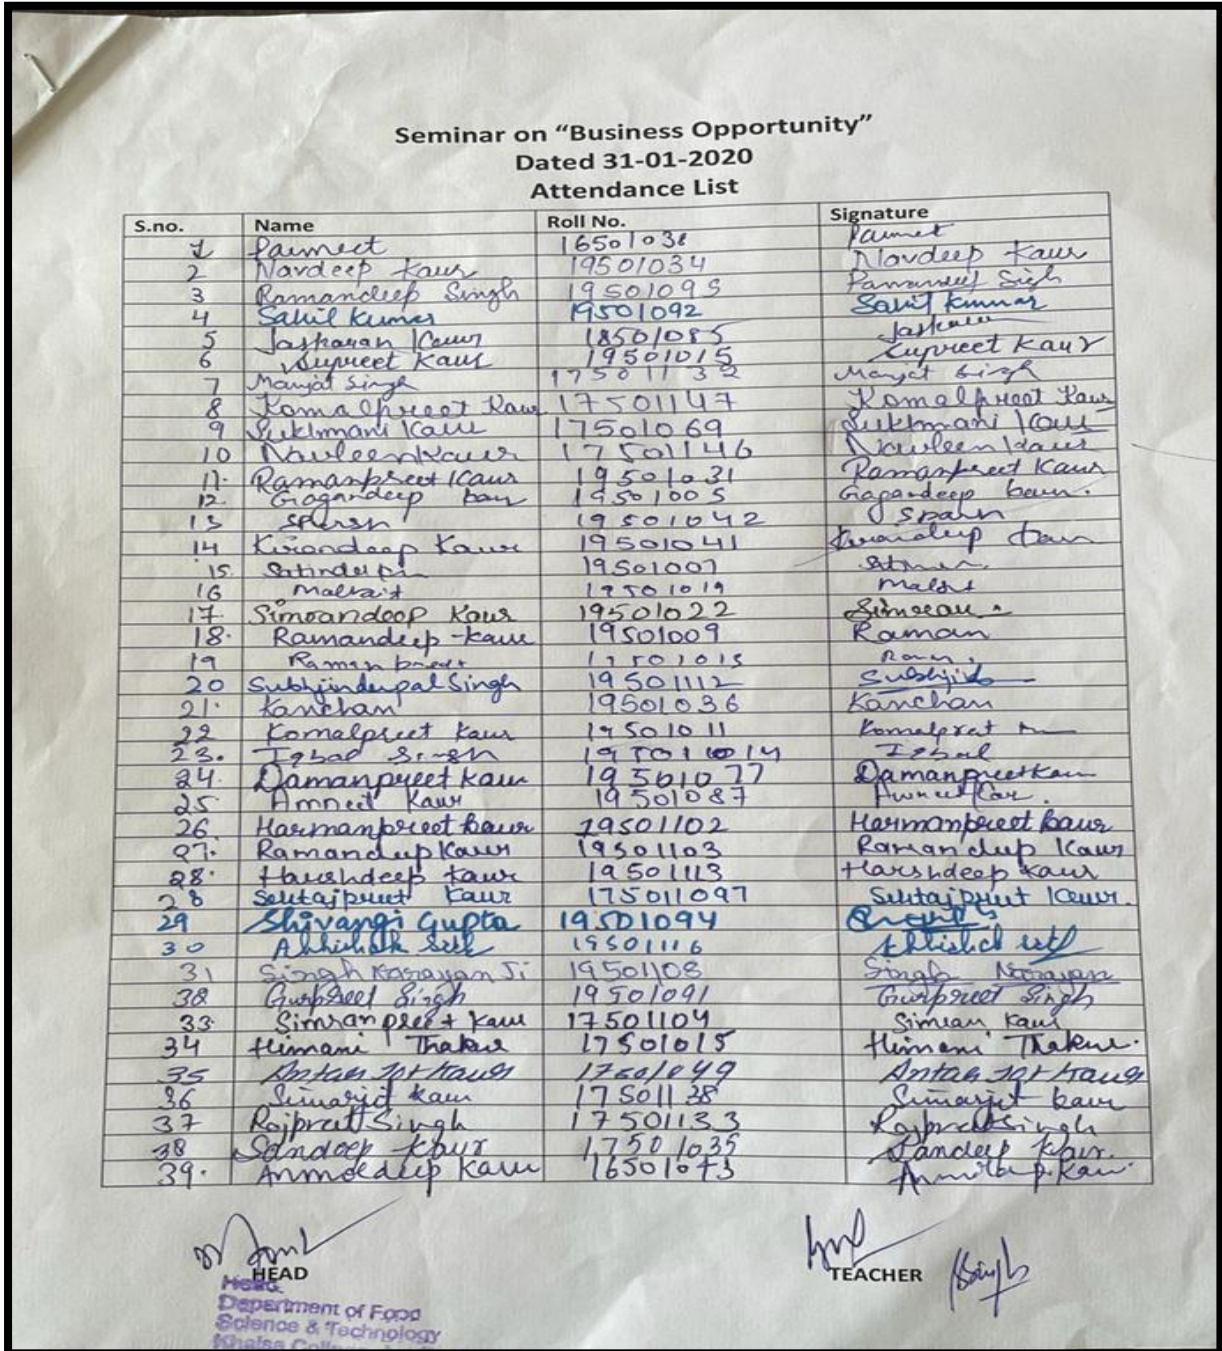 Seminar on “Business Opportunity”
Dated 31-01-2020
Attendance List
S.no. Name Roll No. Signature
1 Parmeet 16501038 Parmeet
2 Navdeep Kaur 19501034 Navdeep Kaur
3 Ramandeep Singh 19501095 Ramandeep Singh
4 Sahil Kumar 19501092 Sahil Kumar
5 Jaskaran Kaur 18501085
6 Supreet Kaur 19501015 Supreet Kaur
7 Manjat Singh 17501132 Manjat Singh
8 Komalpreet Kaur 17501147 Komalpreet Kaur
9 Sukhmani Kaur 17501069 Sukhmani Kaur
10 Navleen Kaur 17501146 Navleen Kaur
11. Ramanpreet Kaur 19501031 Ramanpreet Kaur
12. Gagandeep kaur 19501005 Gagandeep kaur.
13 Sparsh 19501042 Sparsh
14 Kirandeep Kaur 19501041 Kirandeep kaur
15. 19501007
16 19501019
17. Simrandeep Kaur 19501022 Simran
18. Ramandeep Kaur 19501009 Raman
19 Ramanpreet
20 Subhjinderpal Singh 19501112
21. Kanchan 19501036 Kanchan
22 Komalpreet Kaur 19501011 Komalpreet
23. Iqbal Singh Iqbal
24. Damanpreet Kaur 19501077 Damanpreet Kaur
25 Amneet Kaur 19501087 Amneet Kaur.
26. Harmanpreet kaur 19501102 Harmanpreet kaur
27. Ramandeep Kaur 19501103 Ramandeep Kaur
28. Harshdeep Kaur 19501113 Harshdeep Kaur
28 Kaur 175011097 Kaur.
29 Shivangi Gupta 19501094
30 Abhishek 19501116 Abhishek
31 Singh Narayan Ji 19501108 Singh Narayan
32 Gurpreet Singh 19501091 Gurpreet Singh
33. Simranpreet Kaur 17501104 Simran Kaur
34 Himani Thakur 17501015 Himani Thakur.
35 Kaur 17501049 Kaur
36 Simarjit kaur 17501138 Simarjit kaur
37 Rajpreet Singh 17501133 Rajpreet Singh
38 Sandeep Kaur 17501035 Sandeep Kaur.
39. Anmoldeep Kaur 16501073
HEAD TEACHER Singh
Head
Department of Food
Science & Technology
Khalsa College